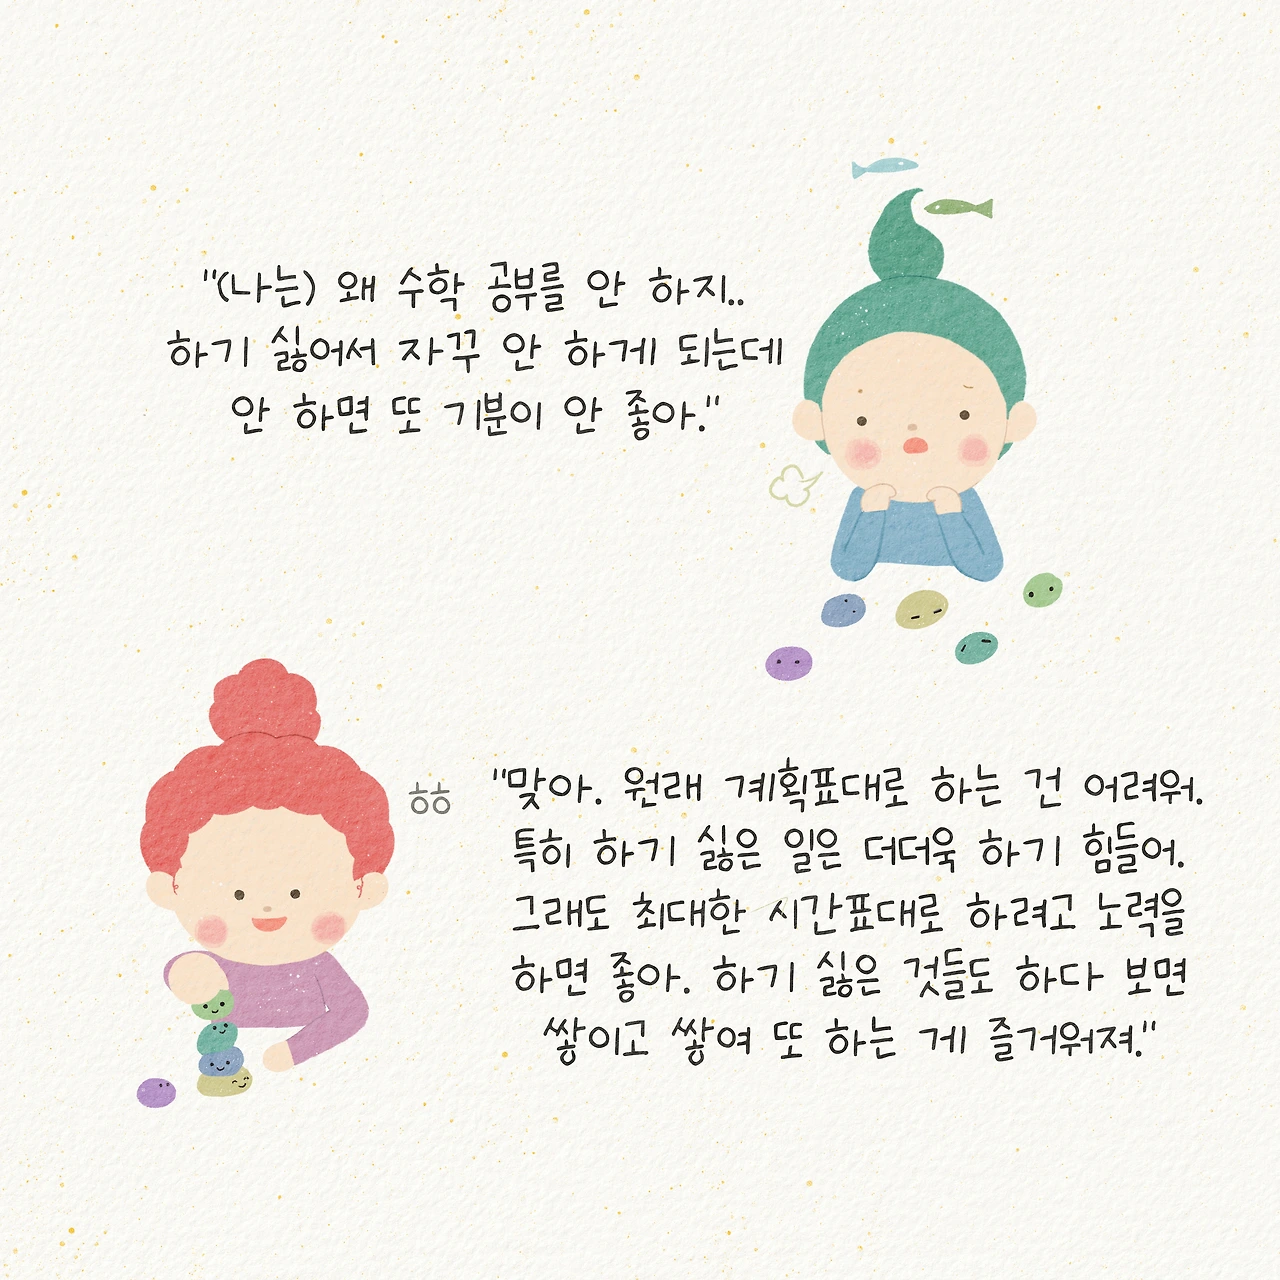 "(나는) 왜 수학 공부를 안 하지..
하기 싫어서 자꾸 안 하게 되는데
안 하면 또 기분이 안 좋아."
ㅎㅎ
"맞아. 원래 계획표대로 하는 건 어려워.
특히 하기 싫은 일은 더더욱 하기 힘들어.
그래도 최대한 시간표대로 하려고 노력을
하면 좋아. 하기 싫은 것들도 하다 보면
쌓이고 쌓여 또 하는 게 즐거워져."